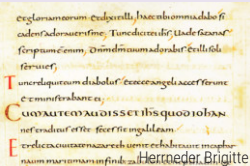 et gloriam eorum. Et dixit illi, haec tibi omnia dabo si
cadens adoraveris me. Tunc dicit ei ihs, Vade satanas
scriptum est enim, Dnm dm tuum adorabis et illi soli
servies,
Tunc reliquit eum diabolus et ecce angeli accesserunt
et ministrabant ei,
Cum autem audisset ihs quod iohan
nes traditus esset secessit in galilaeam
Et relicta civitate nazareth venit et habitavit in caphar
naum maritimam in finibus
Herrneder Brigitte